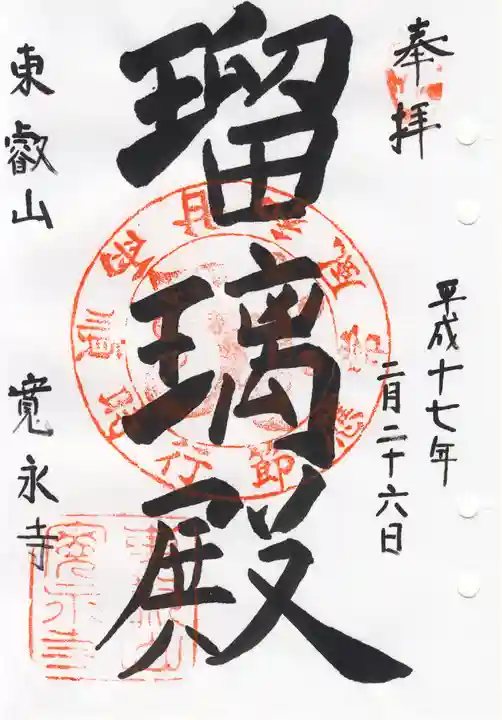 奉拝
平成十七年
二月二十六日
瑠璃殿
東叡山 寛永寺